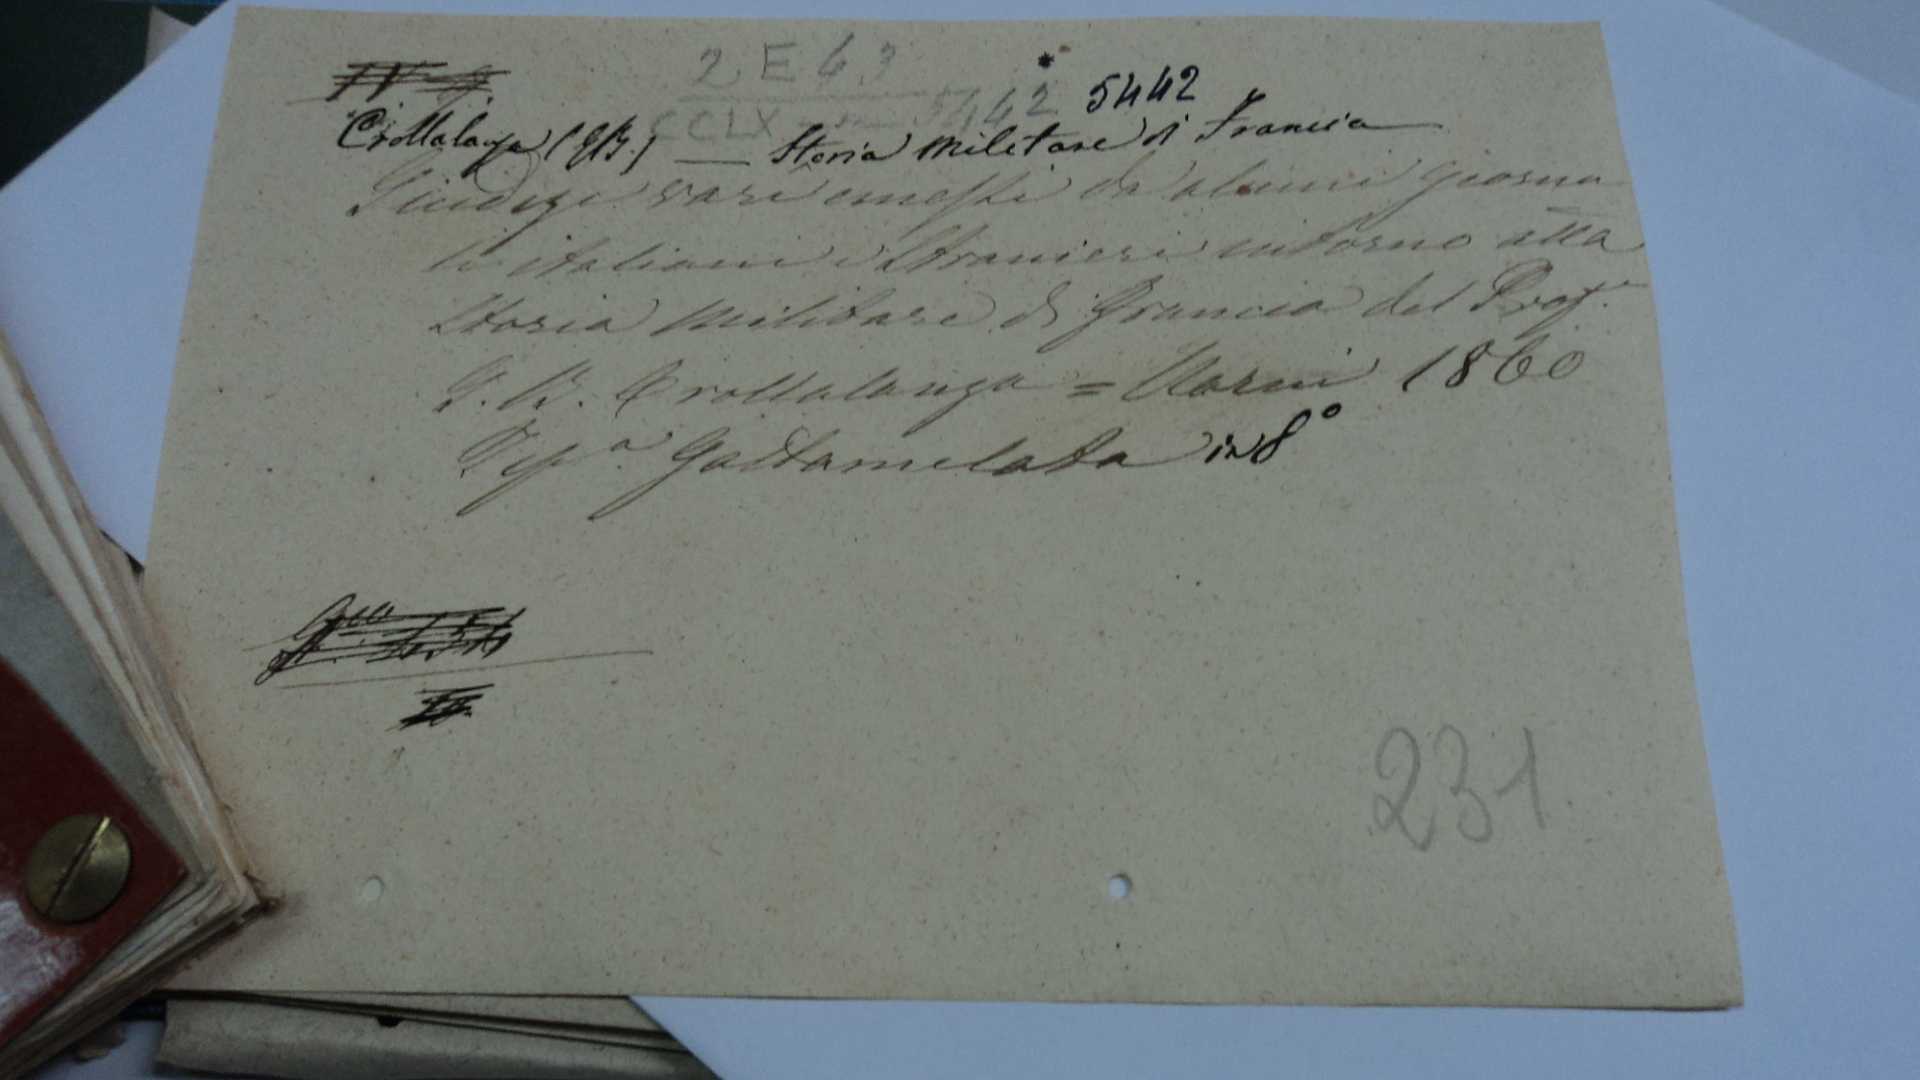 2 E 63
CCLX 5442 5442
Crollalanza (G.B.) — Storia militare di Francia
Giudizi vari emessi da alcuni giorna
li italiani e stranieri intorno alla
Storia militare di Francia del Prof.r
G. B. Crollalanza = Narni 1860
Tip.a Gattamelata in 8°
231